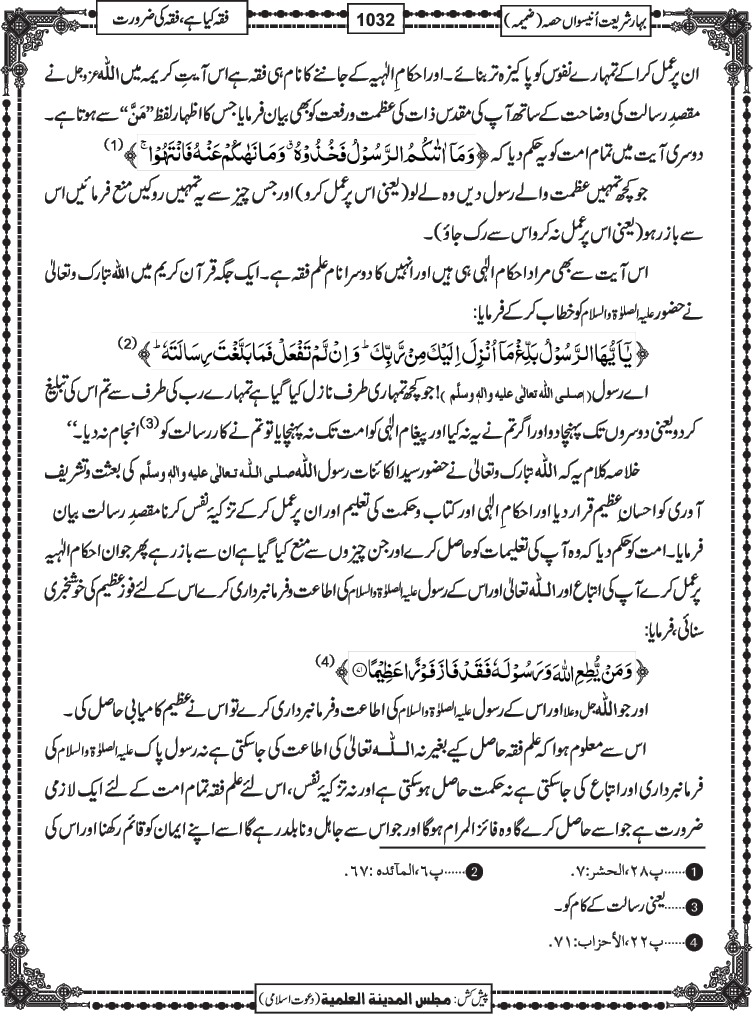 بہارِ شریعت اُنیسواں حصہ (ضمیمہ)
1032
فقہ کیا ہے، فقہ کی ضرورت
ان پر عمل کرا کے تمہارے نفوس کو پاکیزہ تر بنائے۔ اور احکامِ الٰہیہ کے جاننے کا نام ہی فقہ ہے اس آیتِ کریمہ میں اللہ عزوجل نے
مقصدِ رسالت کی وضاحت کے ساتھ آپ کی مقدس ذات کی عظمت و رفعت کو بھی بیان فرمایا جس کا اظہار لفظ ”مَنَّ“ سے ہوتا ہے۔
دوسری آیت میں تمام امت کو یہ حکم دیا کہ ﴿وَمَاۤ اٰتٰىكُمُ الرَّسُوْلُ فَخُذُوْهُ ۗ وَمَا نَهٰىكُمْ عَنْهُ فَانْتَهُوْا ۚ﴾ (1)
جو کچھ تمہیں عظمت والے رسول دیں وہ لے لو (یعنی اس پر عمل کرو) اور جس چیز سے یہ تمہیں روکیں منع فرمائیں اس
سے باز رہو (یعنی اس پر عمل نہ کرو اس سے رک جاؤ)۔
اس آیت سے بھی مراد احکام الٰہی ہی ہیں اور انہیں کا دوسرا نام علم فقہ ہے۔ ایک جگہ قرآن کریم میں اللہ تبارک وتعالیٰ
نے حضور علیہ الصلوٰۃ والسلام کو خطاب کر کے فرمایا:
﴿یٰۤاَیُّهَا الرَّسُوْلُ بَلِّغْ مَاۤ اُنْزِلَ اِلَیْكَ مِنْ رَّبِّكَ ؕ وَ اِنْ لَّمْ تَفْعَلْ فَمَا بَلَّغْتَ رِسَالَتَهٗ ؕ﴾ (2)
اے رسول (صلی اللہ تعالٰی علیہ واٰلہٖ وسلَّم)! جو کچھ تمہاری طرف نازل کیا گیا ہے تمہارے رب کی طرف سے تم اس کی تبلیغ
کردو یعنی دوسروں تک پہنچا دو اور اگر تم نے یہ نہ کیا اور پیغام الٰہی کو امت تک نہ پہنچایا تو تم نے کارِ رسالت کو (3) انجام نہ دیا۔“
خلاصہ کلام یہ کہ اللہ تبارک وتعالیٰ نے حضور سید الکائنات رسول اللہ صلی اللہ تعالٰی علیہ واٰلہٖ وسلَّم کی بعثت و تشریف
آوری کو احسانِ عظیم قرار دیا اور احکامِ الٰہی اور کتاب و حکمت کی تعلیم اور ان پر عمل کر کے تزکیۂ نفس کرنا مقصدِ رسالت بیان
فرمایا۔ امت کو حکم دیا کہ وہ آپ کی تعلیمات کو حاصل کرے اور جن چیزوں سے منع کیا گیا ہے ان سے باز رہے پھر جو ان احکام الٰہیہ
پر عمل کرے آپ کی اتباع اور اللہ تعالیٰ اور اس کے رسول علیہ الصلوٰۃ والسلام کی اطاعت و فرمانبرداری کرے اس کے لئے فوزِ عظیم کی خوشخبری
سنائی، فرمایا:
﴿وَ مَنْ یُّطِعِ اللّٰهَ وَ رَسُوْلَهٗ فَقَدْ فَازَ فَوْزًا عَظِیْمًا ۝۷۱﴾ (4)
اور جو اللہ جل وعلا اور اس کے رسول علیہ الصلوٰۃ والسلام کی اطاعت و فرمانبرداری کرے تو اس نے عظیم کامیابی حاصل کی۔
اس سے معلوم ہوا کہ علم فقہ حاصل کیے بغیر نہ اللہ تعالیٰ کی اطاعت کی جاسکتی ہے نہ رسول پاک علیہ الصلوٰۃ والسلام کی
فرمانبرداری اور اتباع کی جاسکتی ہے نہ حکمت حاصل ہوسکتی ہے اور نہ تزکیۂ نفس، اس لئے علم فقہ تمام امت کے لئے ایک لازمی
ضرورت ہے جو اسے حاصل کرے گا وہ فائز المرام ہوگا اور جو اس سے جاہل و نابلد رہے گا اسے اپنے ایمان کو قائم رکھنا اور اس کی
1 ......پ۲۸،الحشر:۷.
2 ......پ٦،المآئدہ:٦٧.
3 ......یعنی رسالت کے کام کو۔
4 ......پ۲۲،الأحزاب:۷۱.
پیش کش: مجلس المدینۃ العلمیۃ (دعوتِ اسلامی)